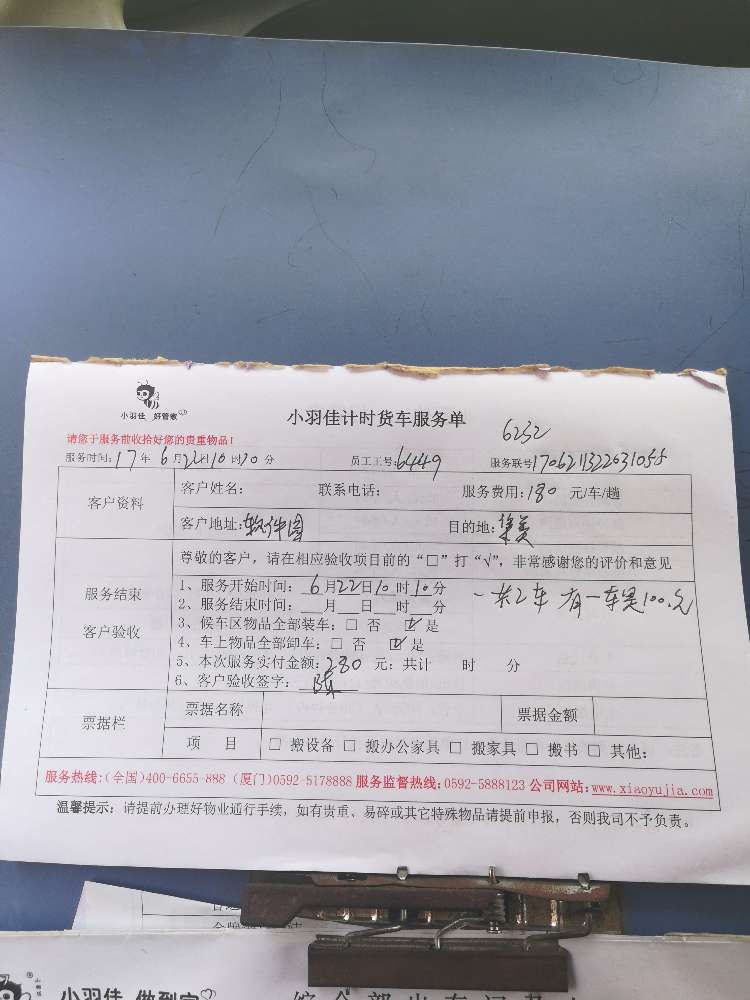 小羽佳 好管家
小羽佳计时货车服务单
6232
请您于服务前收拾好您的贵重物品!
服务时间:17年6月22日10时10分 员工工号:6449 服务联号
客户资料
客户姓名: 联系电话: 服务费用:180 元/车/趟
客户地址:软件园 目的地:集美
服务结束
客户验收
尊敬的客户,请在相应验收项目前的“□”打“√”,非常感谢您的评价和意见
1、服务开始时间:6月22日10时10分
2、服务结束时间:__月__日__时__分
一共2车 有一车是100元
3、候车区物品全部装车:□ 否 ☑ 是
4、车上物品全部卸车:□ 否 ☑ 是
5、本次服务实付金额:280 元:共计 时 分
6、客户验收签字:陈
票据栏
票据名称 票据金额
项 目 □ 搬设备 □ 搬办公家具 □ 搬家具 □ 搬书 □ 其他:
服务热线:(全国)400-6655 888 (厦门)0592-5178888 服务监督热线:0592-5888123 公司网站:www.xiaoyujia.com
温馨提示:请提前办理好物业通行手续,如有贵重、易碎或其它特殊物品请提前申报,否则我司不予负责。
小羽佳 做到家